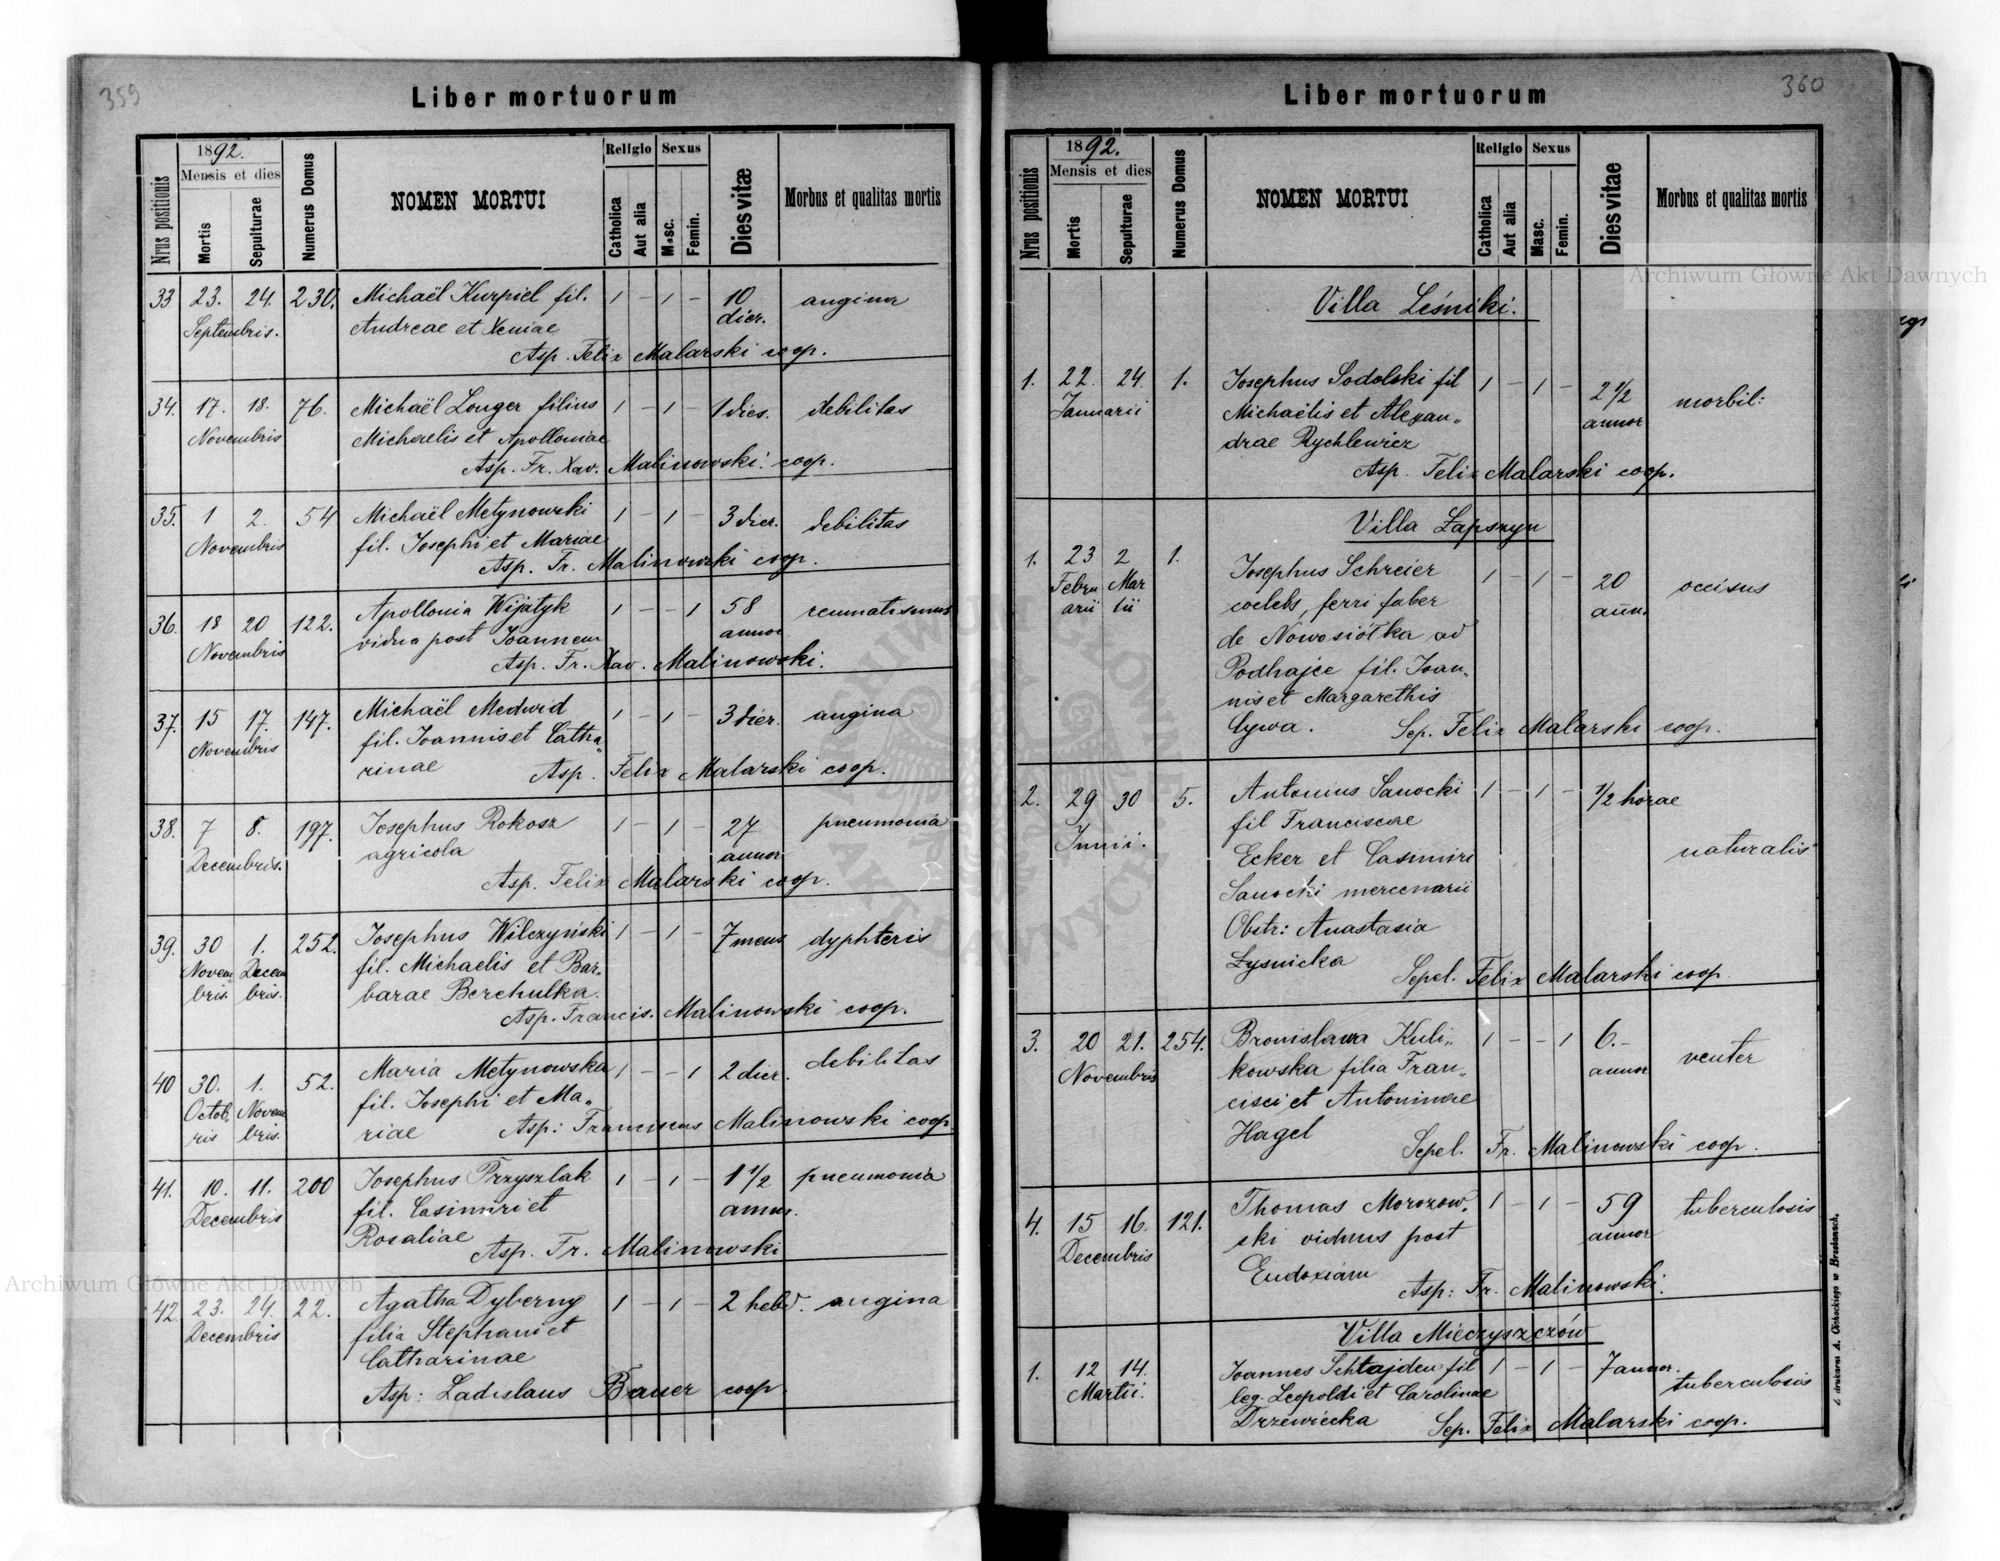 359
Liber mortuorum
Nrus positionis
1892.
Mensis et dies
Mortis
Sepulturae
Numerus Domus
NOMEN MORTUI
Religio
Sexus
Catholica
Aut alia
Masc.
Femin.
Dies vitæ
Morbus et qualitas mortis
33 23. 24. 230. Michaël Kurpiel fil. 1 - 1 - 10 angina
Septembris. Andreae et Xeniae dier.
Asp. Felix Malarski coop.
34. 17. 18. 76. Michaël Longer filius 1 - 1 - 1 dies. debilitas
Novembris Michaelis et Apolloniae
Asp. Fr. Xav. Malinowski. coop.
35. 1 2. 54 Michaël Metynowski 1 - 1 - 3 dier. debilitas
Novembris fil. Josephi et Mariae
Asp. Fr. Malinowski coop.
36. 18 20 122. Apollonia Wijatyk 1 - - 1 58 reumatismus
Novembris vidua post Joannem annor
Asp. Fr. Xav. Malinowski.
37. 15 17. 147. Michaël Medwid 1 - 1 - 3 dier. angina
Novembris fil. Joannis et Catha„
rinae Asp. Felix Malarski coop.
38. 7 8. 197. Josephus Rokosz 1 - 1 - 27 pneumonia
Decembris. agricola annor
Asp. Felix Malarski coop.
39. 30 1. 252. Josephus Wilczyński 1 - 1 - 7 mens dyphteris
Novem Decem fil. Michaelis et Bar„
bris. bris. barae Berehulka.
Asp. Francis. Malinowski coop.
40 30. 1. 52. Maria Metynowska 1 - - 1 2 dier. debilitas
Octob. Novem fil. Josephi et Ma„
ris bris. riae Asp: Franciscus Malinowski coop.
41. 10. 11. 200 Josephus Przyszlak 1 - 1 - 1 1/2 pneumonia
Decembris fil. Casimiri et annor.
Rosaliae Asp. Fr. Malinowski
42. 23. 24. 22. Agatha Dyberny 1 - 1 - 2 hebd. angina
Decembris filia Stephani et
Catharinae
Asp: Ladislaus Bauer coop.
360
Liber mortuorum
Nrus positionis
1892.
Mensis et dies
Mortis
Sepulturae
Numerus Domus
NOMEN MORTUI
Religio
Sexus
Catholica
Aut alia
Masc.
Femin.
Dies vitae
Morbus et qualitas mortis
Villa Leśniki.
1. 22. 24. 1. Josephus Sodolski fil 1 - 1 - 2 1/2 morbil:
Januarii Michaëlis et Alexan„ annor
drae Rychlewicz
Asp. Felix Malarski coop.
Villa Łapszyn
1. 23 2 1. Josephus Schreier 1 - 1 - 20 occisus
Febru Mar coelebs, ferri faber ann.
arii tii de Nowosiółka ad
Podhajce fil. Joan„
nis et Margarethis
Cywa. Sep. Felix Malarski coop.
2. 29 30 5. Antonius Sanocki 1 - 1 - 1/2 horae
Junii. fil Franciscae
Ecker et Casimiri naturalis
Sanocki mercenarii
Obstr: Anastasia
Łysnicka Sepel. Felix Malarski coop
3. 20 21. 254. Bronislawa Kuli„ 1 - - 1 6.- venter
Novembris kowska filia Fran„ annor
cisci et Antoninae
Hagel Sepel. Fr. Malinowski coop.
4. 15 16. 121. Thomas Morozow„ 1 - 1 - 59 tuberculosis
Decembris ski viduus post annor
Eudoxiam Asp: Fr. Malinowski.
Villa Mieczyszczów
1. 12 14. Joannes Schtajden fil 1 - 1 - 7 annor. tuberculosis
Martii. leg. Leopoldi et Carolinae
Drzewiecka Sep. Felix Malarski coop.
Archiwum Główne Akt Dawnych
Archiwum Główne Akt Dawnych